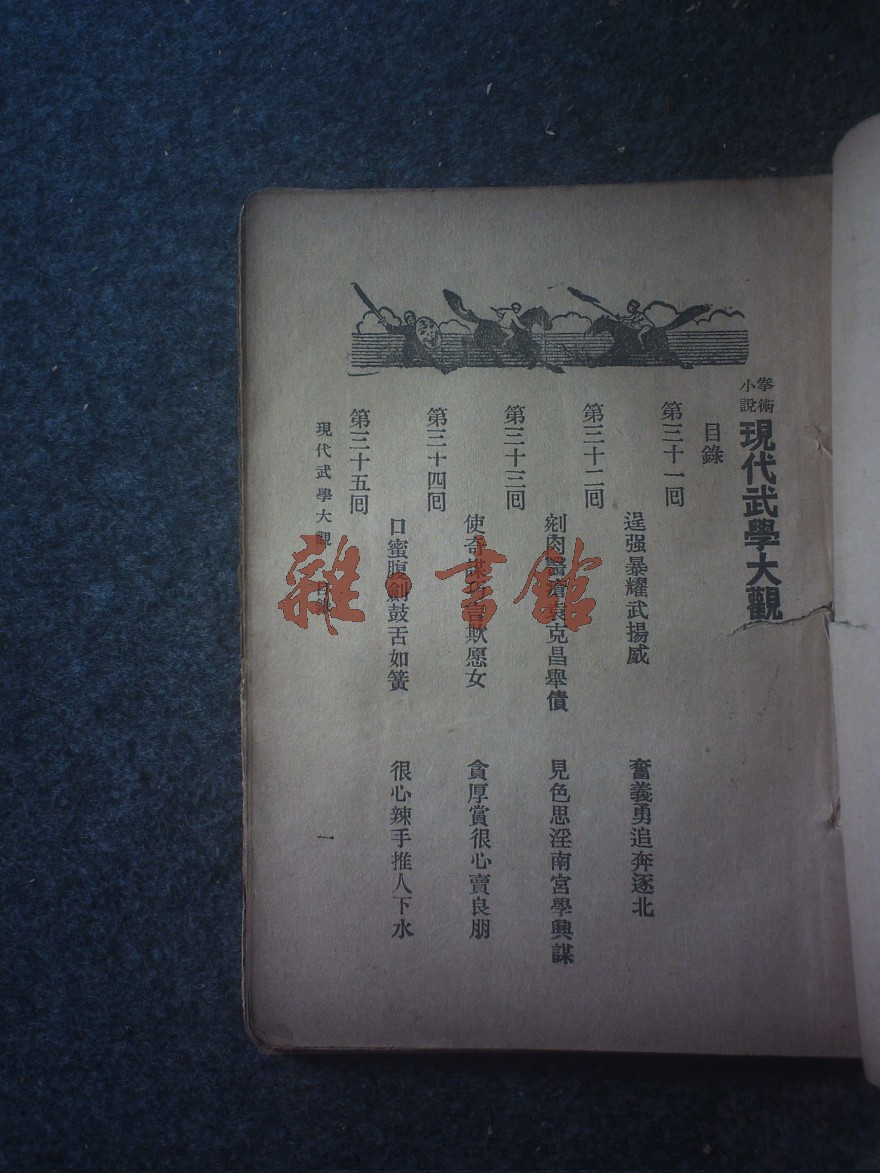 拳術小說 現代武學大觀
目錄
第三十一囘
逞强暴耀武揚威 奮義勇追奔逐北
第三十二囘
剜肉醫瘡袁克昌舉債 見色思淫南宮學興謀
第三十三囘
使奇謀巧言欺愿女 貪厚賞很心賣良朋
第三十四囘
口蜜腹劍鼓舌如簧 很心辣手推人下水
第三十五囘
現代武學大觀 目錄 一
雜·書館